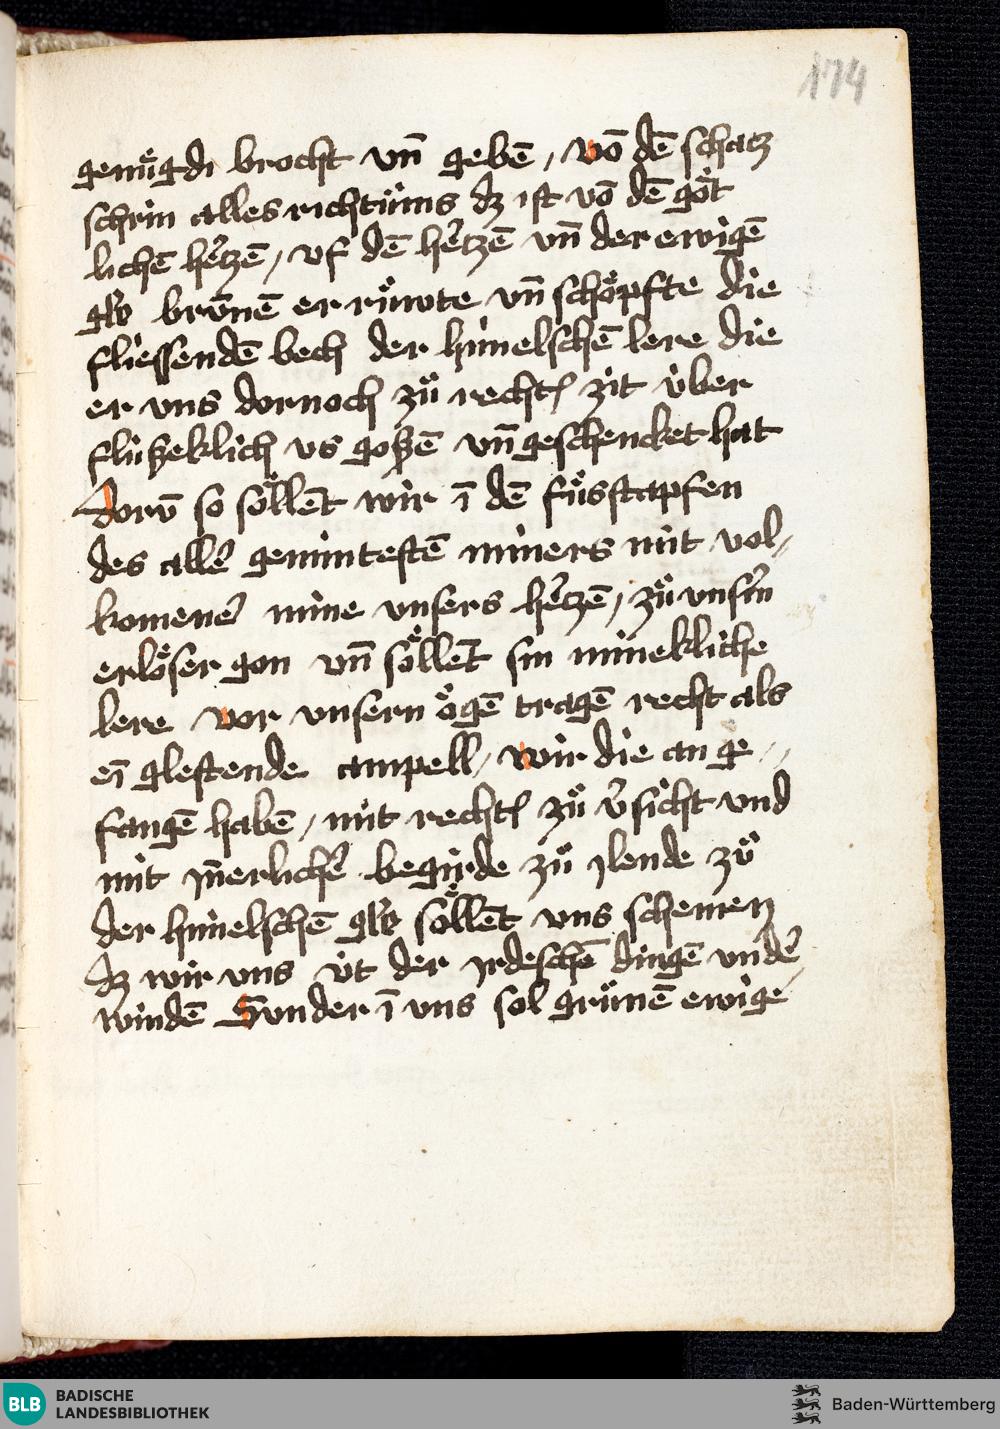 174
genuͤgdi brocht vn̄ gebē / vō dē schatz
schrin alles richtuͤms dz ist vō dē goͤt
lichē hertzē / vf dē hertzē vn̄ der ewigē
glz brūnē er ruͤwte vn̄ schoͤpfte die
fliessendē bech der himelschē lere die
er vns dornoch zuͤ rechter zit v́ber
flússeklich vs gossē vn̄ geschencket hat
Dorv̄ so soͤllēt wir ī dē fuͤsstapfen
des aller gemintestē miners mit vol⸗
komener mine vnsers hertzē / zuͤ vnserm
erloͤser gon vn̄ soͤllēt sin minekliche
lere vor vnsern oͤgē tragē recht als
eī glestende ampell / wir die an ge⸗
fangē habē / mit rechter zuͤ versicht vnd
mit īnerlicher begirde zuͤ ylende zuͤ
der himelschē glz soͤllēt vns schemen
dz wir vns v́t der yrdeschē dingē vnder
windē Sunder ī vns sol gruͤnē ewige
BLB
BADISCHE
LANDESBIBLIOTHEK
Baden-Württemberg